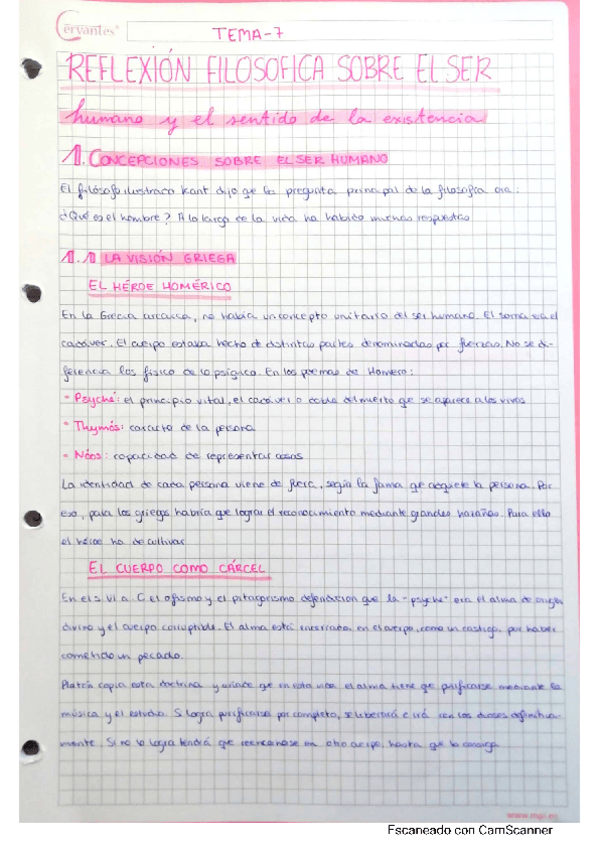 Cervantes
TEMA-7
REFLEXIÓN FILOSOFICA SOBRE EL SER
humano y el sentido de la existencia
1. CONCEPCIONES SOBRE EL SER HUMANO
El filósofo ilustrado Kant dijo que la pregunta principal de la filosofía era:
¿Qué es el hombre? A lo largo de la vida ha habido muchas respuestas
1.1 LA VISIÓN GRIEGA
EL HÉROE HOMÉRICO
En la Grecia arcaica, no había un concepto unitario del ser humano. El soma era el
cadáver. El cuerpo estaba hecho de distintas partes denominadas por fuerzas. No se di-
ferencia los físico de lo psíquico. En los poemas de Homero:
- Psyché: el principio vital, el cadáver o doble del muerto que se aparece a los vivos
- Thymós: caracter de la persona
- Nóos: capacidad de representar cosas
La identidad de cada persona viene de fuera, según la fama que adquiere la persona. Por
eso, para los griegos habría que lograr el reconocimiento mediante grandes hazañas. Para ello
el héroe ha de cultivar
EL CUERPO COMO CÁRCEL
En el s VI a. C el orfismo y el pitagorismo defendieron que la "psyche" era el alma de origen
divino y el cuerpo corruptible. El alma está encerrada en el cuerpo, como un castigo, por haber
cometido un pecado.
Platón copia esta doctrina y añade que en esta vida el alma tiene que purificarse mediante la
música y el estudio. Si logra purificarse por completo, se liberará e irá con los dioses definitiva-
mente. Si no lo logra tendrá que reencarnarse en otro cuerpo, hasta que lo consiga
Escaneado con CamScanner